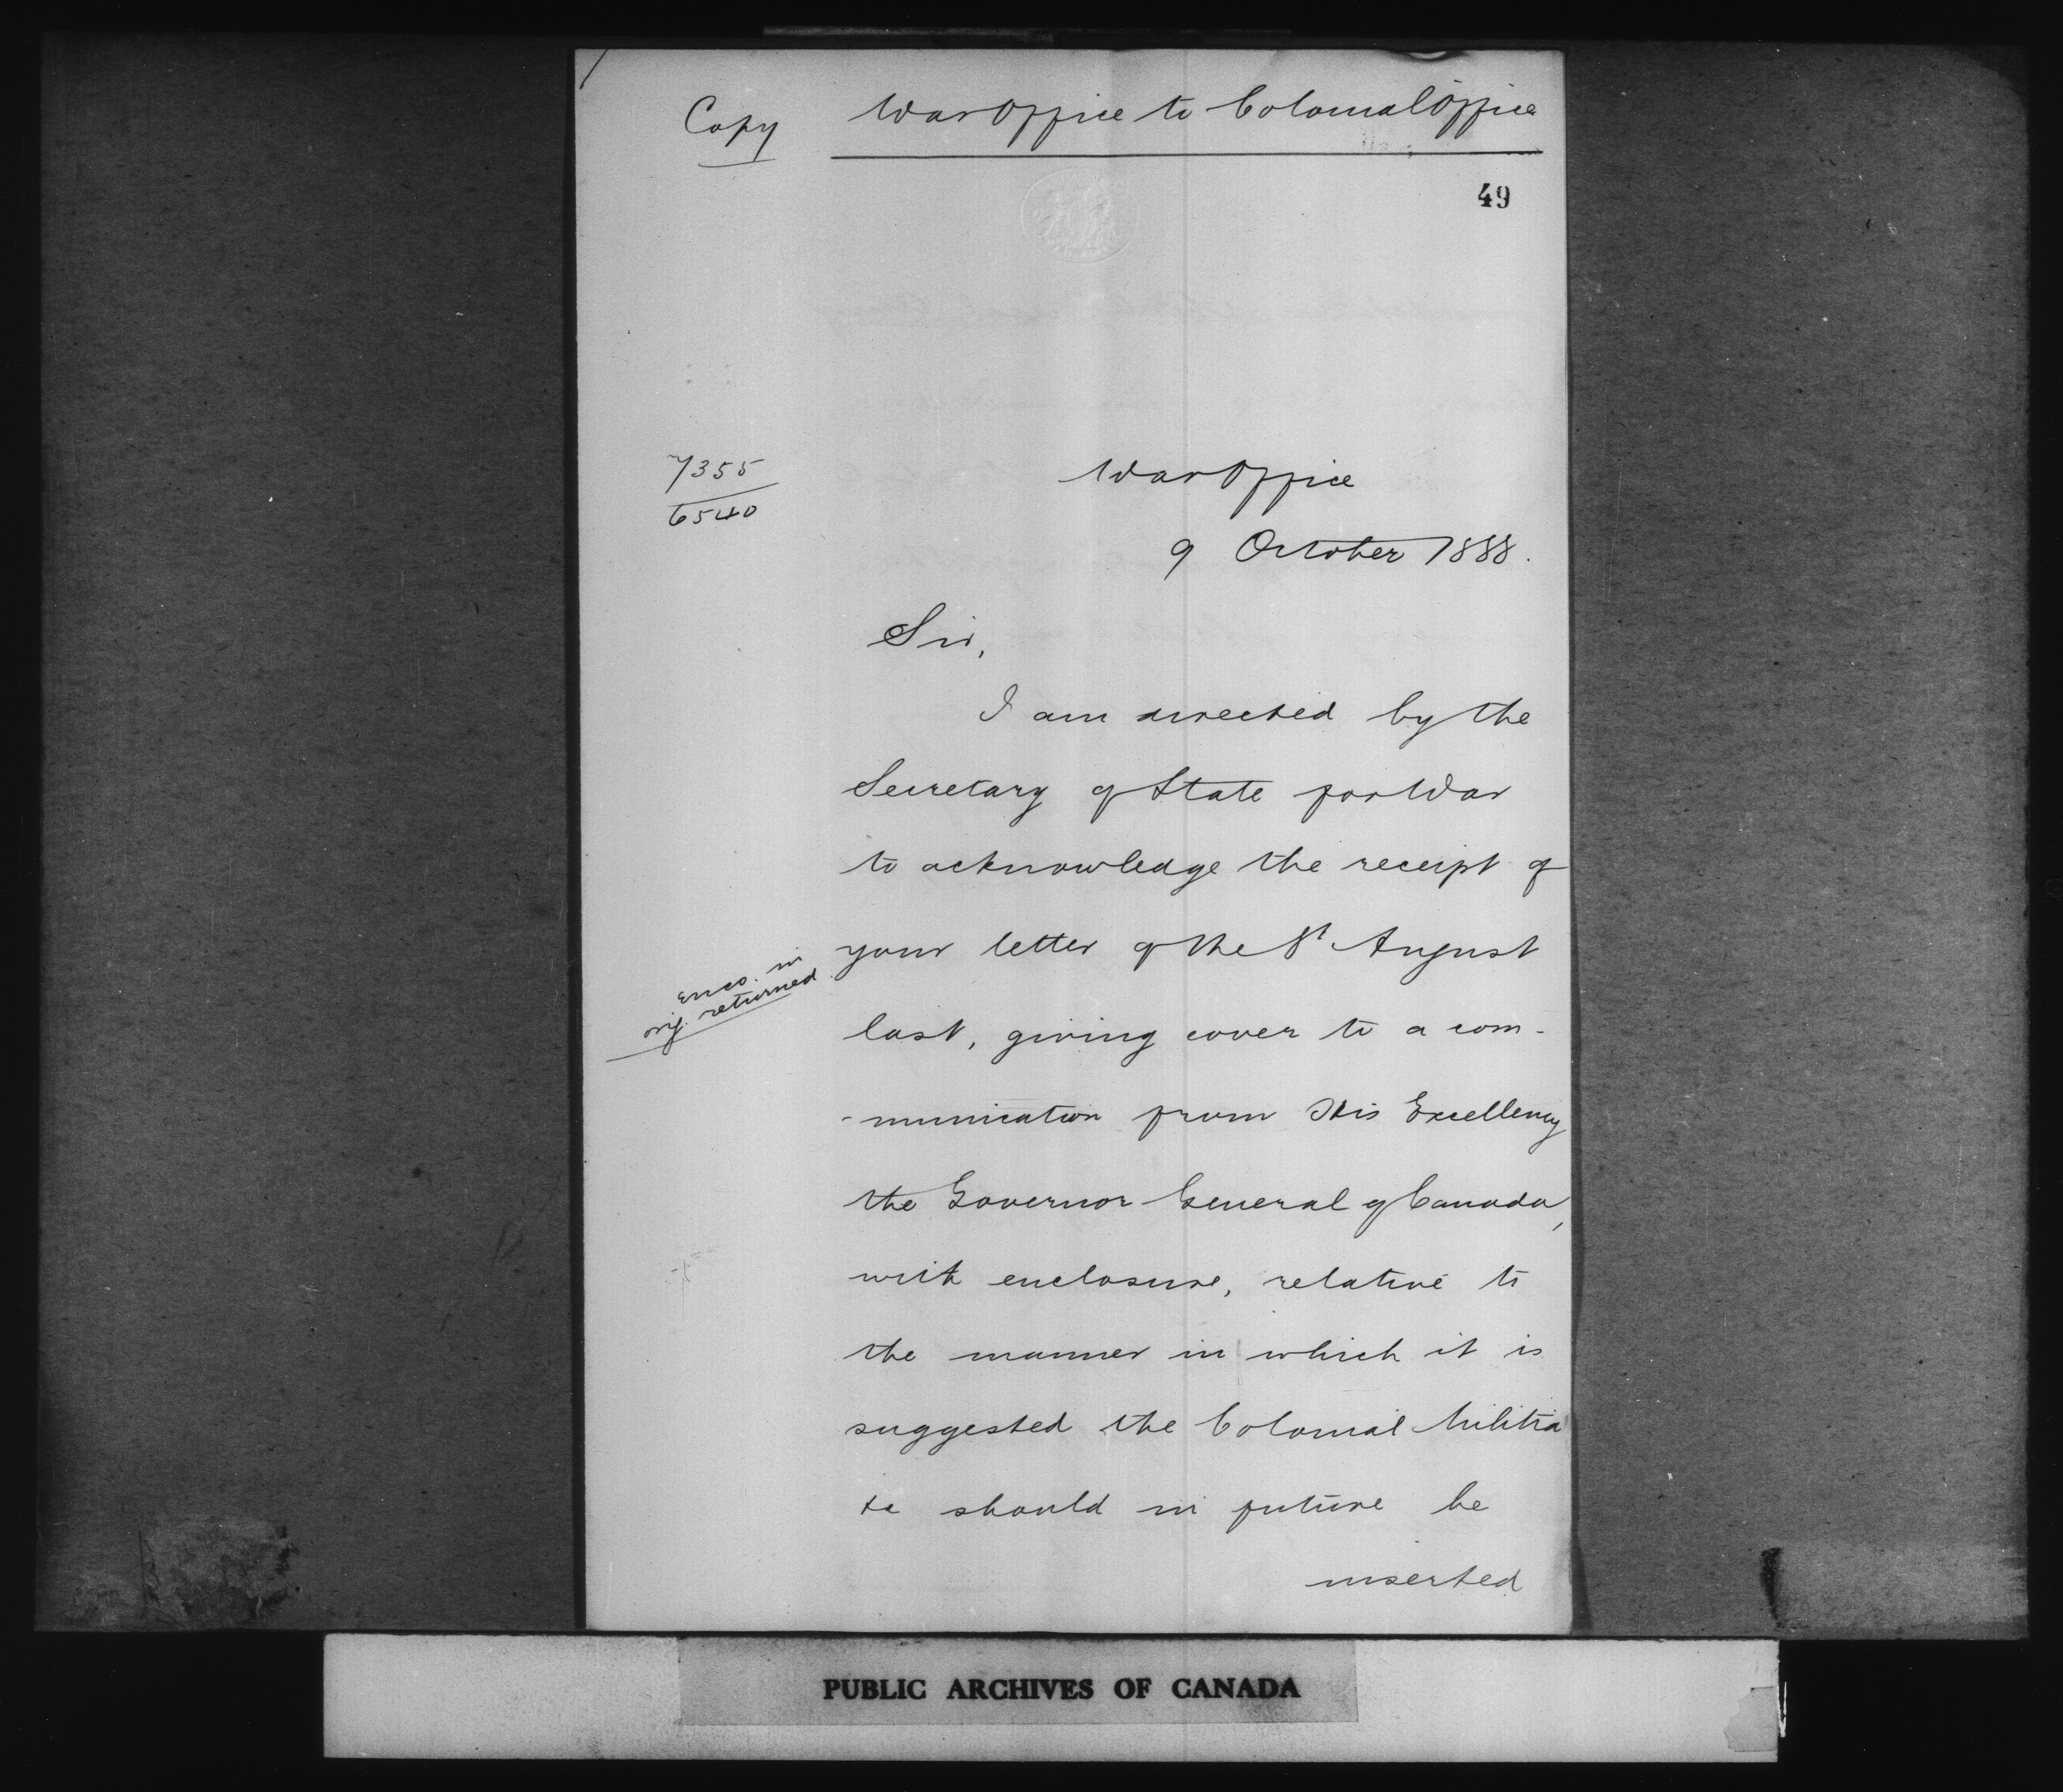 Copy War Office to Colonial Office
49
7355
6540
War Office
9 October 1888.
Sir,
I am directed by the
Secretary of State for War
to acknowledge the receipt of
your letter of the 8th August
encs. in
orig. returned
last, giving cover to a com-
-munication from His Excellency
the Governor General of Canada,
with enclosure, relative to
the manner in which it is
suggested the Colonial Militia
&c should in future be
inserted
PUBLIC ARCHIVES OF CANADA